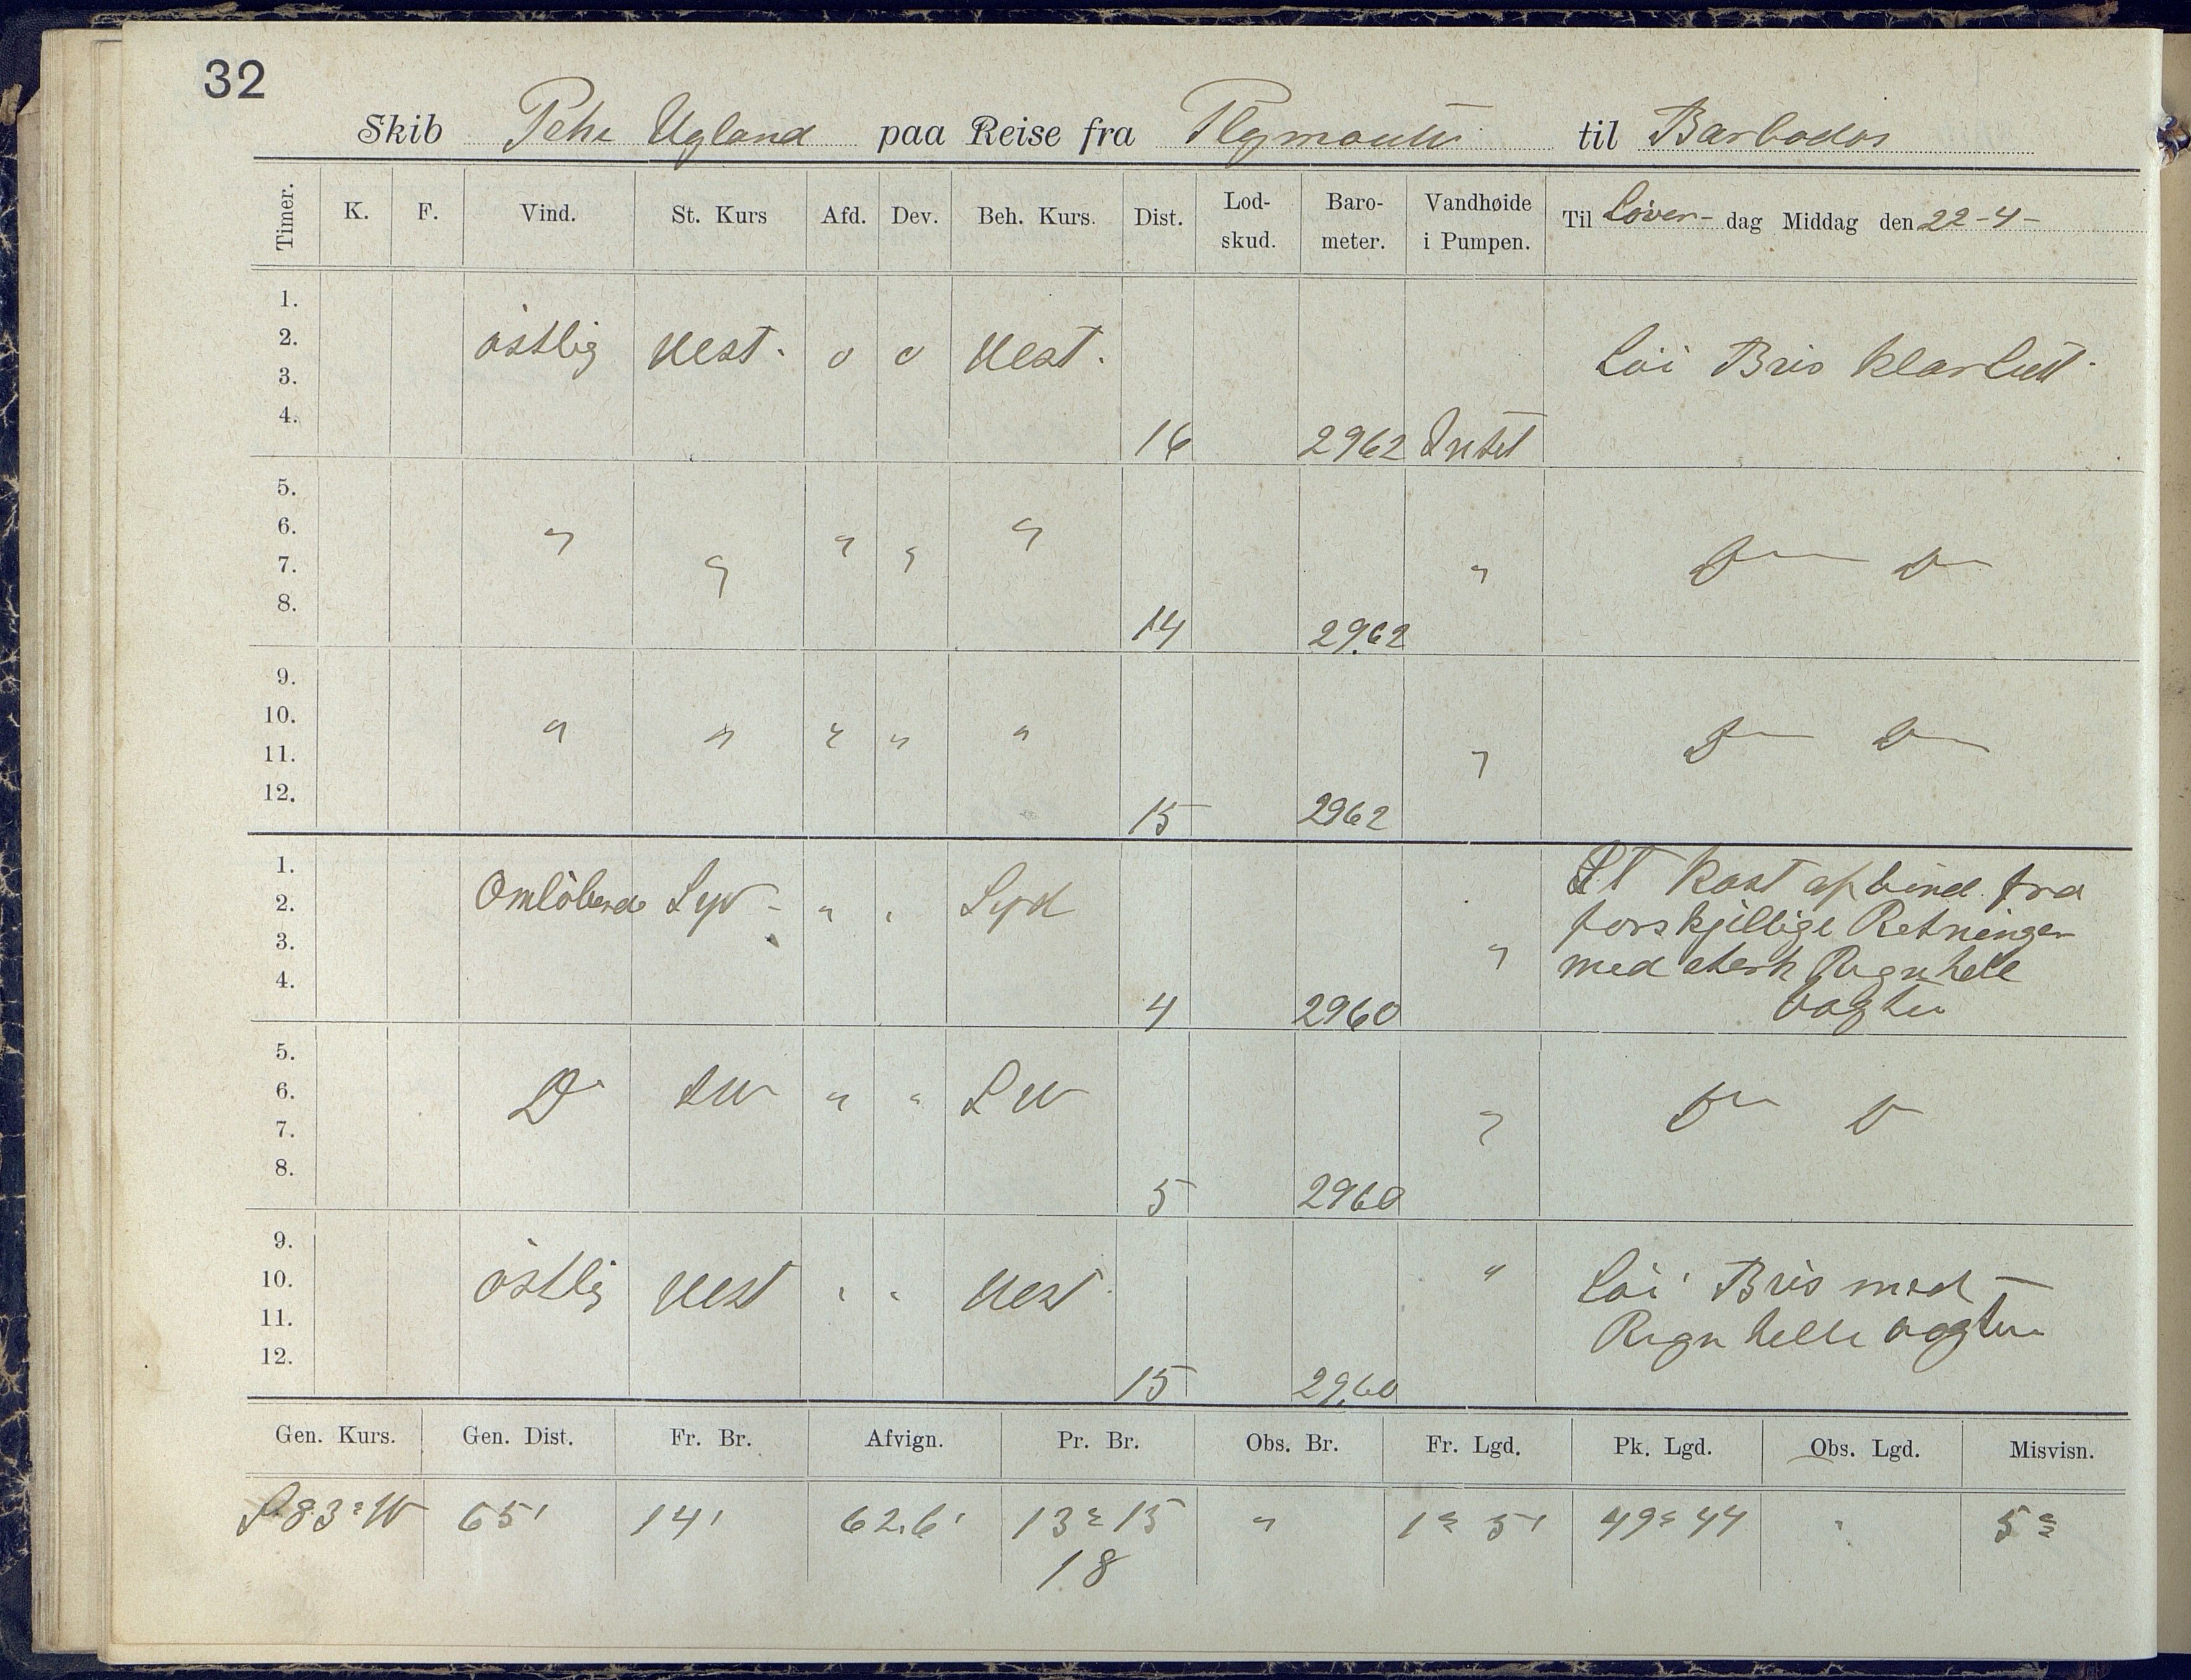 32
Skib Pehr Ugland paa Reise fra Plymouth til Barbados
Timer. K. F. Vind. St. Kurs Afd. Dev. Beh. Kurs. Dist. Lod-skud. Baro-meter. Vandhøide i Pumpen. Til Löver- dag Middag den 22-4-
1.
2. östlig Vest. 0 0 Vest. Löi Bris klarluft.
3.
4. 16 2962 Intet
5.
6. " " " " "
7. " Do Do
8. 14 29.62
9.
10. " " " " "
11. " Do Do
12. 15 2962
1. St Kast af Vind fra
2. Omlöbende Syd - " " Syd forskjellige Retninger
3. " med sterk Regn hele
4. 4 2960 Vagten
5.
6. Do SW " " SW Do Do
7. "
8. 5 2960
9.
10. östlig Vest " " Vest " Löi Bris med
11. Regn helle vagten
12. 15 29.60
Gen. Kurs. Gen. Dist. Fr. Br. Afvign. Pr. Br. Obs. Br. Fr. Lgd. Pk. Lgd. Obs. Lgd. Misvisn.
S.83°W 65' 14' 62.6' 13° 15 " 1° 5' 49° 44 " 5°
18